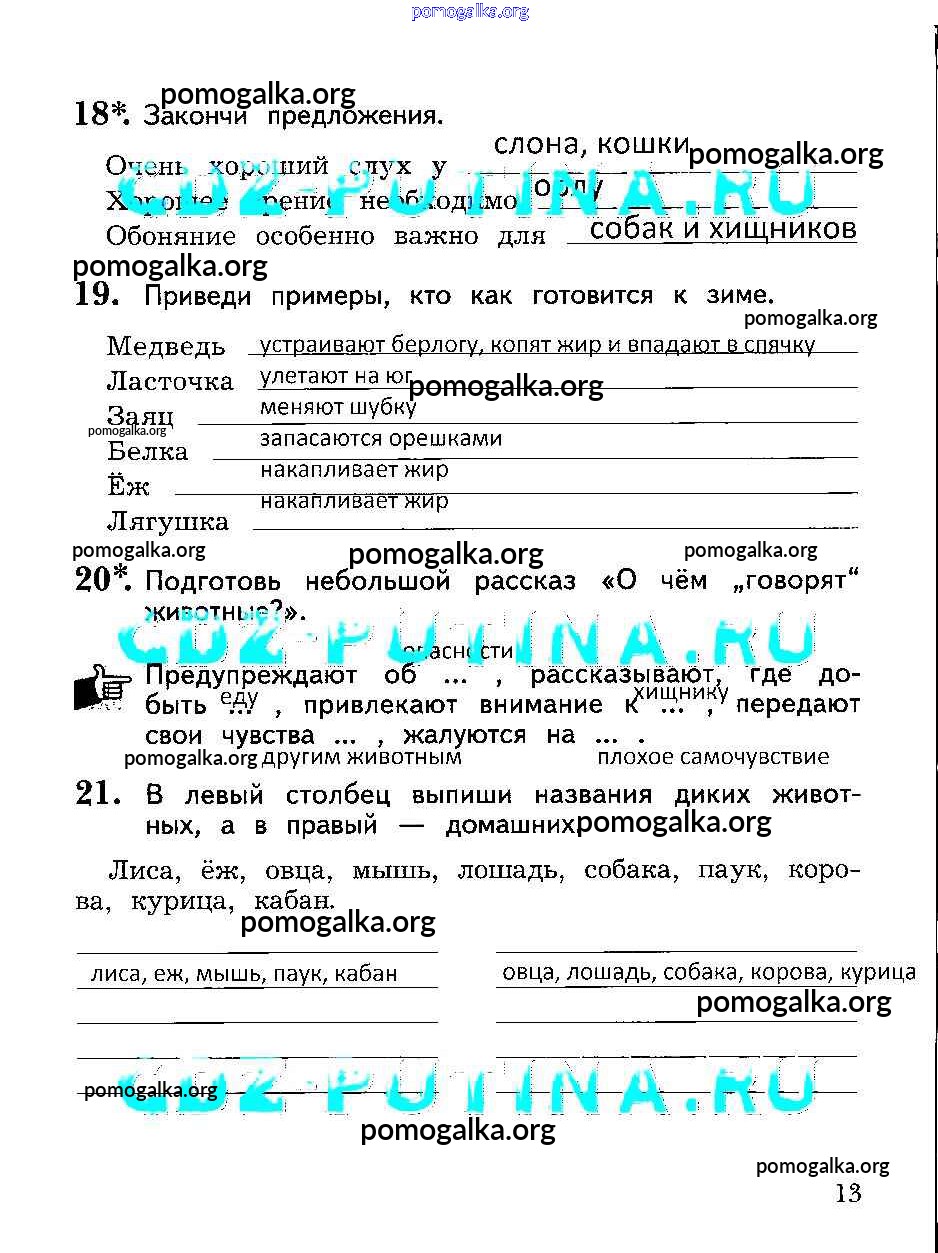 pomogalka.org
pomogalka.org
18*. Закончи предложения.
слона, кошки
Очень хороший слух у
pomogalka.org
орлу
Хорошее зрение необходимо
GDZ-PUTINA.RU
Обоняние особенно важно для собак и хищников
pomogalka.org
19. Приведи примеры, кто как готовится к зиме.
pomogalka.org
Медведь устраивают берлогу, копят жир и впадают в спячку
Ласточка улетают на юг
pomogalka.org
Заяц меняют шубку
pomogalka.org
Белка запасаются орешками
Ёж накапливает жир
Лягушка накапливает жир
pomogalka.org pomogalka.org pomogalka.org
20*. Подготовь небольшой рассказ «О чём „говорят“
животные?».
GDZ-PUTINA.RU
опасности
Предупреждают об ... , рассказывают, где до-
быть еду ... , привлекают внимание к хищнику ... , передают
свои чувства ... , жалуются на ... .
pomogalka.org другим животным плохое самочувствие
21. В левый столбец выпиши названия диких живот-
ных, а в правый — домашних.
pomogalka.org
Лиса, ёж, овца, мышь, лошадь, собака, паук, коро-
ва, курица, кабан.
pomogalka.org
лиса, еж, мышь, паук, кабан овца, лошадь, собака, корова, курица
pomogalka.org
GDZ-PUTINA.RU
pomogalka.org
pomogalka.org
pomogalka.org
13